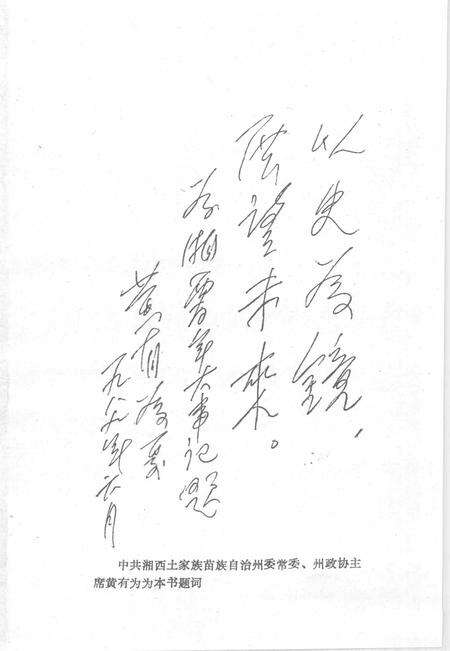 以史为镜，
展望未来。
为湘西百年大事记题
黄有为
一九八九年六月
中共湘西土家族苗族自治州委常委、州政协主
席黄有为为本书题词